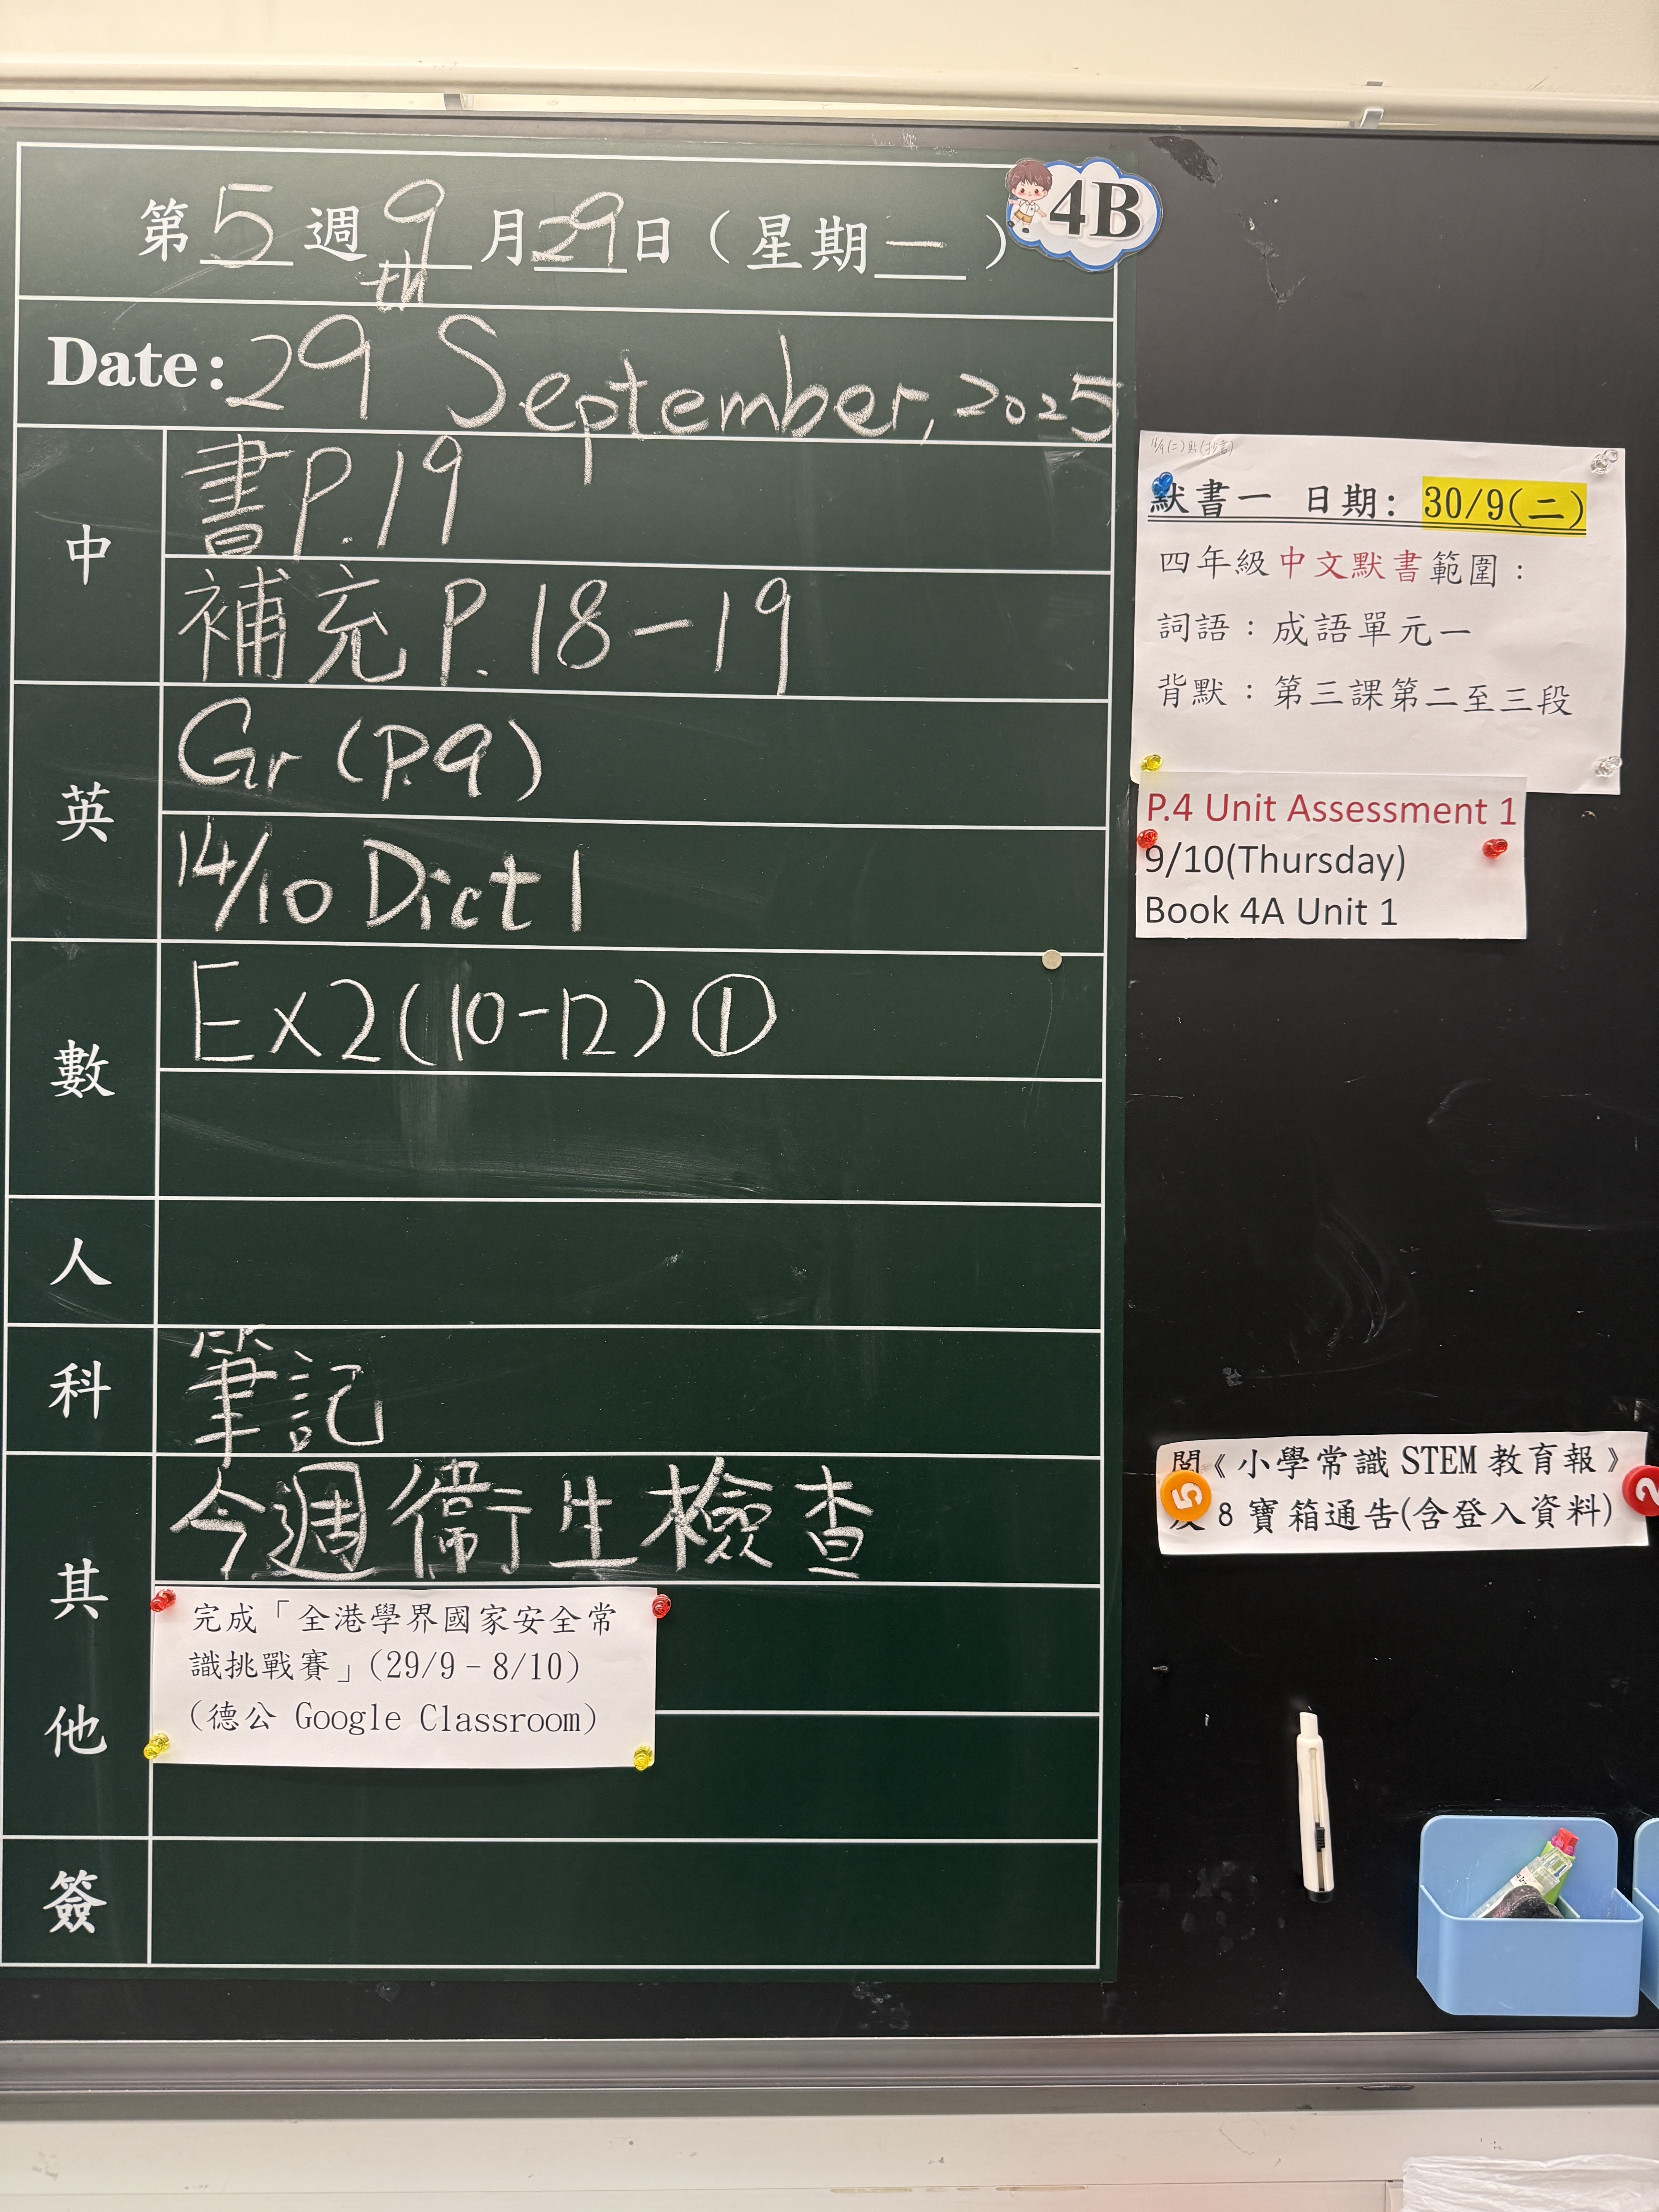 第5週9月29日（星期一）
4B
th
Date: 29 September, 2025
中
書P.19
補充 P.18-19
英
Gr (P.9)
14/10 Dict 1
數
Ex2(10-12)①
人
科
筆記
其他
今週衞生檢查
完成「全港學界國家安全常
識挑戰賽」(29/9–8/10)
(德公 Google Classroom)
簽
默書一 日期: 30/9(二)
四年級中文默書範圍：
詞語：成語單元一
背默：第三課第二至三段
P.4 Unit Assessment 1
9/10(Thursday)
Book 4A Unit 1
閱《小學常識 STEM 教育報》
及 8 寶箱通告(含登入資料)
5
2